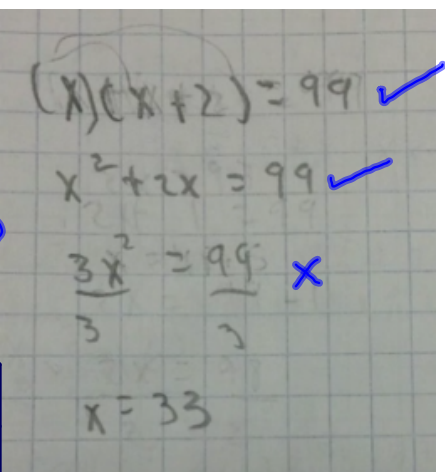 (x)(x+2) = 99 ✓
x² + 2x = 99 ✓
3x² = 99 x
3 3
x = 33